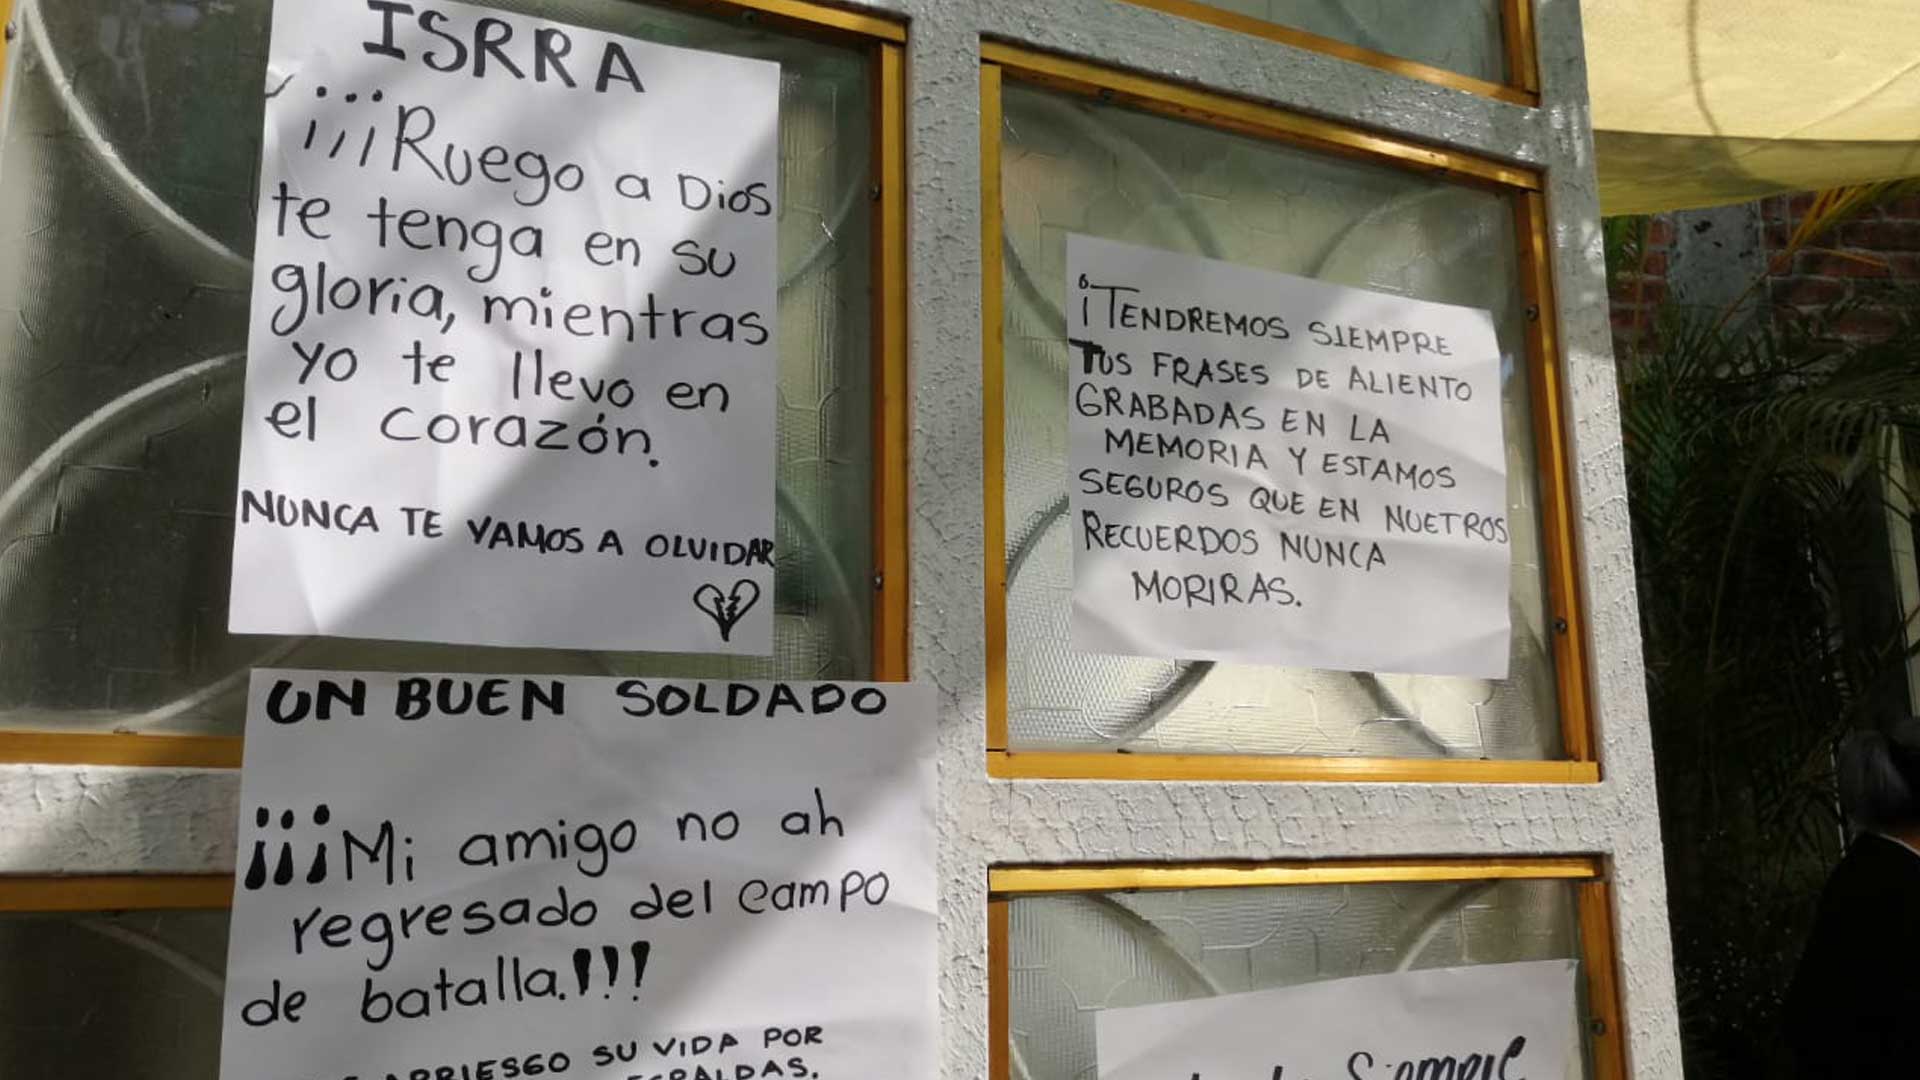 ISRRA
¡¡¡Ruego a Dios
te tenga en su
gloria, mientras
yo te llevo en
el corazón.
NUNCA TE VAMOS A OLVIDAR
¡TENDREMOS SIEMPRE
TUS FRASES DE ALIENTO
GRABADAS EN LA
MEMORIA Y ESTAMOS
SEGUROS QUE EN NUETROS
RECUERDOS NUNCA
MORIRAS.
UN BUEN SOLDADO
¡¡¡Mi amigo no ah
regresado del campo
de batalla.!!!
ARRIESGO SU VIDA POR
Siempre